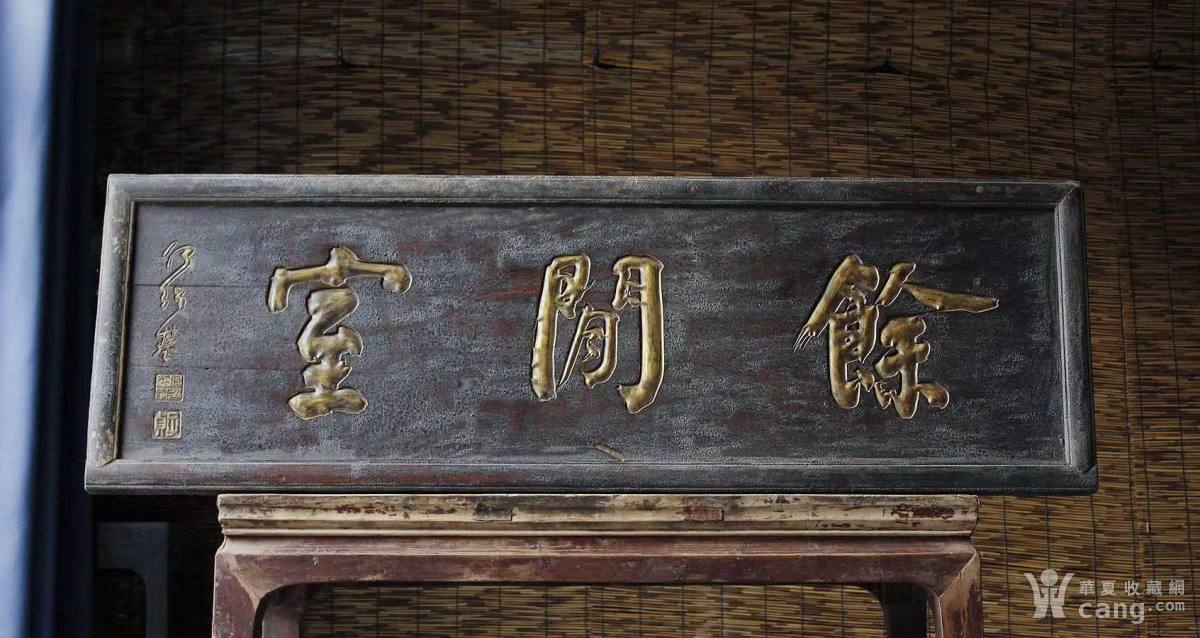 餘閒室
何紹基
華夏收藏網
cang.com